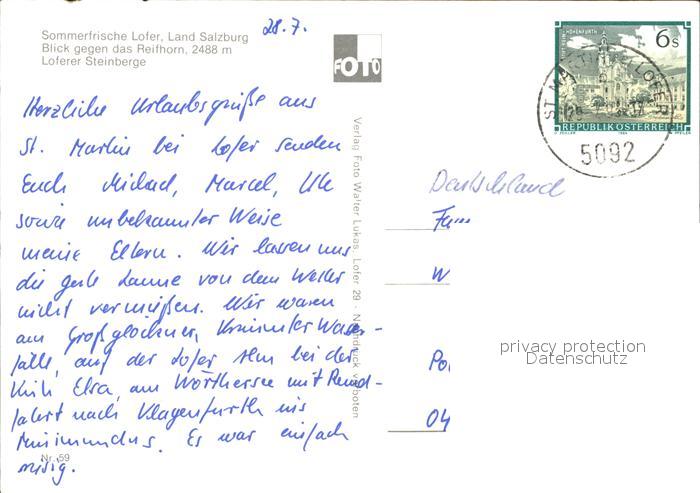 28.7.
Sommerfrische Lofer, Land Salzburg
Blick gegen das Reifhorn, 2488 m
Loferer Steinberge
FOTO
Herzliche Urlaubsgrüße aus
St. Martin bei Lofer senden
Euch Michael, Marcel, Ute
sowie unbekannter Weise
meine Eltern. Wir lassen uns
die gute Laune von dem Wetter
nicht vermießen. Wir waren
am Großglockner, Krimmler Wasser-
fälle, auf der Lofer Alm bei der
Kuh Elsa, am Wörthersee mit Rund-
fahrt nach Klagenfurth ins
Minimundus. Es war einfach
Nr. 59
Verlag Foto Walter Lukas, Lofer 29 · Nachdruck verboten
6s
STIFT HOHENFURTH
REPUBLIK ÖSTERREICH
ST. MARTIN B. LOFER
5092
Deutschland
Fam
W
Po
04
privacy protection
Datenschutz